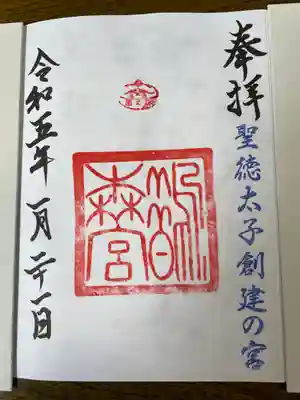 奉拝
聖徳太子創建の宮
鵲森宮
令和五年一月二十一日